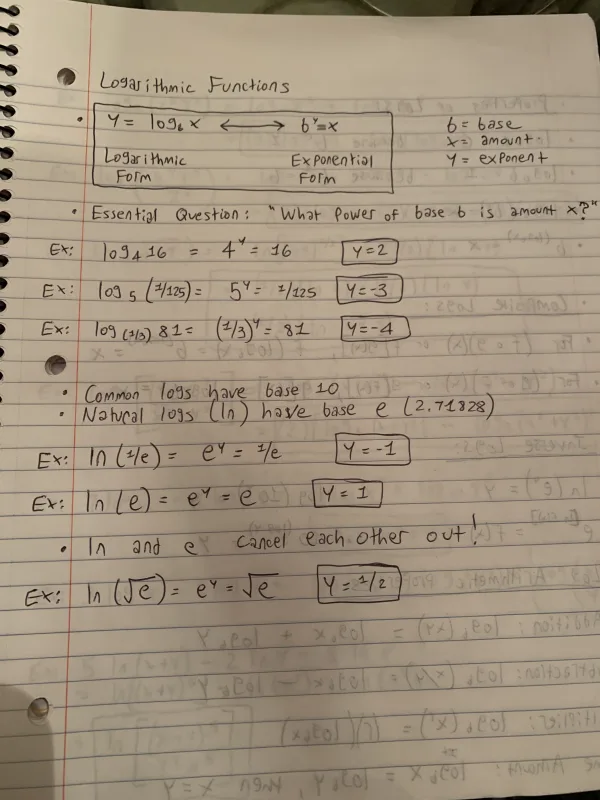 Logarithmic Functions
• y = log_b x ⟷ b^y = x
Logarithmic Form
Exponential Form
b = base
x = amount
y = exponent
• Essential Question: "What power of base b is amount x?"
Ex: log_4 16 = 4^y = 16 y = 2
Ex: log_5 (1/125) = 5^y = 1/125 y = -3
Ex: log_(1/3) 81 = (1/3)^y = 81 y = -4
• Common logs have base 10
• Natural logs (ln) have base e (2.71828)
Ex: ln (1/e) = e^y = 1/e y = -1
Ex: ln (e) = e^y = e y = 1
• ln and e cancel each other out!
Ex: ln (√e) = e^y = √e y = 1/2